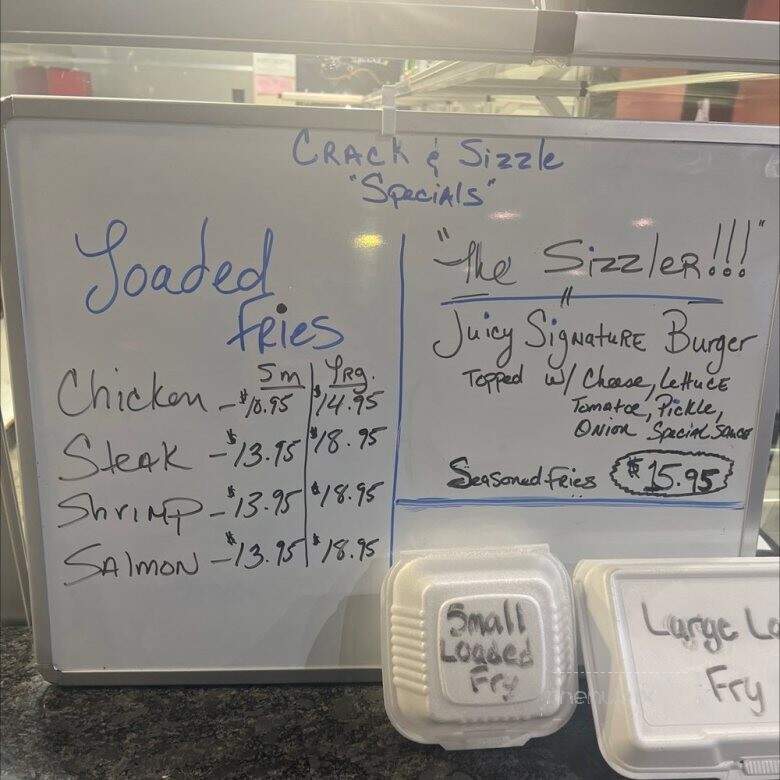 CRACK & Sizzle
"Specials"
Loaded
Fries
Sm Lrg.
Chicken - $10.95 $14.95
Steak - $13.95 $18.95
Shrimp - $13.95 $18.95
Salmon - $13.95 $18.95
"The Sizzler!!!"
Juicy Signature Burger
Topped w/ Cheese, Lettuce
Tomatoe, Pickle,
Onion Special Sauce
Seasoned Fries $15.95
Small
Loaded
Fry
Large Lo
Fry